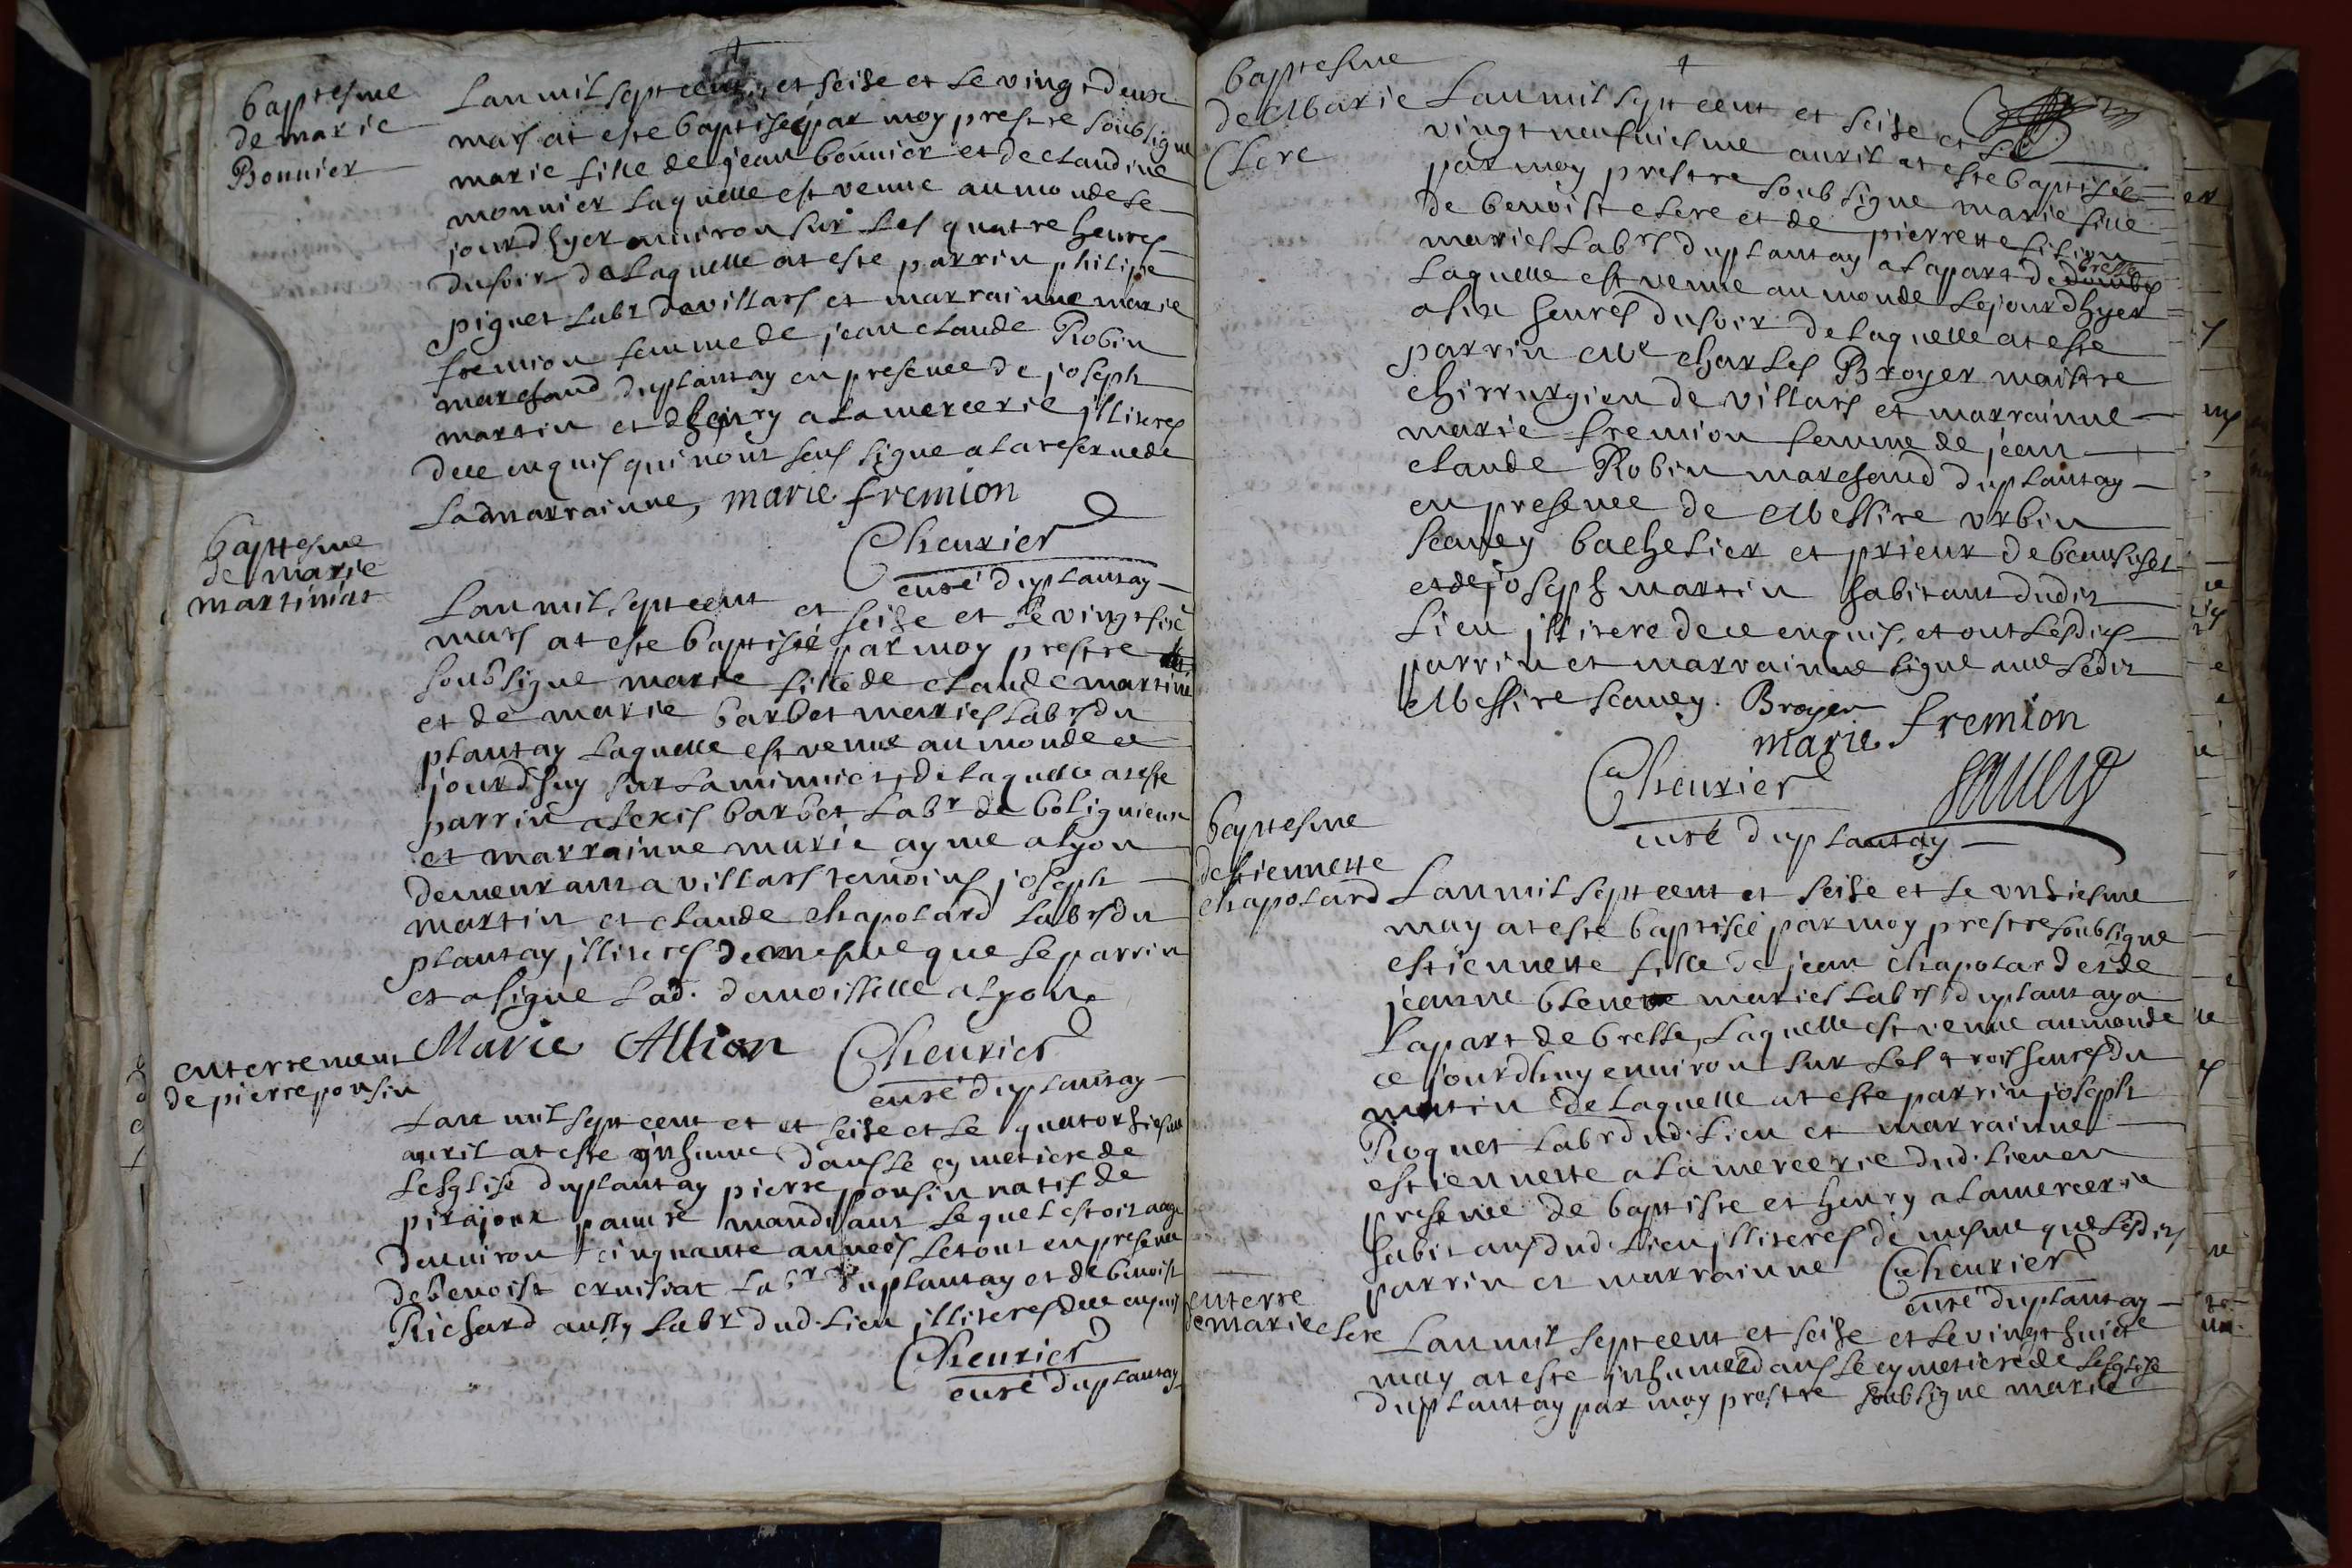 baptesme
de marie
Bonnier
Lan mil sept cent et seise et le vingt deux
mars at este baptisée par moy prestre soubsigne
marie fille de jean bonnier et de claudine
monnier laquelle est venue au monde le
jourdhyer environ sur les quatre heures
du soir de laquelle at este parrin philipe
piguet labr de villars et marrainne marie
fremion femme de jean claude Robin
marchand duplantay en presence de joseph
martin et dhenry alamercerie jlliteres
de ce enquis qui nont seus signe a la reserve de
lad marrainne, marie fremion
Cheurier
curé duplantay
baptesme
de marie
martiniat
Lan mil sept cent et seise et le vingt sixe
mars at este baptisée par moy prestre
soubsigne marie fille de claude martini
et de marie barbet mariés labrs du
plantay laquelle est venue au monde ce
jourdhuy sur la minuict, de laquelle at este
parrin alexis barbet labr de bolignieux
et marrainne marie ayme alyon
demeurant a villars temoins joseph
martin et claude chapolard labrs du
plantay jlliteres de mesme que le parrin
et a signe lad. demoiselle alyon.
Marie Allion Cheurier
curé duplantay
enterrement
de pierre ponsin
Lan mil sept cent et et seise et le quatorsiesme
auril at este ynhume dans le cymetiere de
lesglise duplantay pierre ponsin natif de
pirajoux pauure mandiant lequel estoit aage
denuiron cinquante années le tout en presence
de benoist cruisiat labr duplantay et de benoist
Richard aussy labr dud. lieu jlliteres de ce enquis
Cheurier
curé duplantay
baptesme
de Marie
Clere
Lan mil sept cent et seise et le
vingt neufuiesme auril at este baptisée
par moy prestre soubsigne marie fille
de benoist clere et de pierrette
mariés labrs duplantay a la part de dombes bresse
laquelle est venue au monde le jourdhyer
a six heures du soir de laquelle at este
parrin Mr charles Broyer maistre
chirrurgien de villars et marrainne
marie fremion femme de jean
claude Robin marchand duplantay
en presence de Messire vrbin
seauey bachelier et prieur de beaulieu
et de joseph martin habitant dudit
lieu jllitere de ce enquis, et ont lesdits
parrin et marrainne signe auec ledit
Messire seauey. Broyer
marie fremion
Cheurier
curé duplantay
baptesme
destiennette
chapolard
Lan mil sept cent et seise et le vnsiesme
may at este baptisée par moy prestre soubsigne
estiennette fille de jean chapolard et de
jeanne blene mariés labrs duplantay a
la part de bresse, laquelle est venue au monde
ce jourdhuy enuiron sur les trois heures du
matin de laquelle at este parrin joseph
Roquet labr dud. lieu et marrainne
estiennette alamercerie dud. lieu en
presence de baptiste et henry alamercerie
habitans dud. lieu jlliteres de mesme que lesdits
parrin et marrainne Cheurier
curé duplantay
enterre
de marie clere
Lan mil sept cent et seise et le vingt huicte
may at este jnhumée dans le cymetiere de lesglise
duplantay par moy prestre soubsigne marie